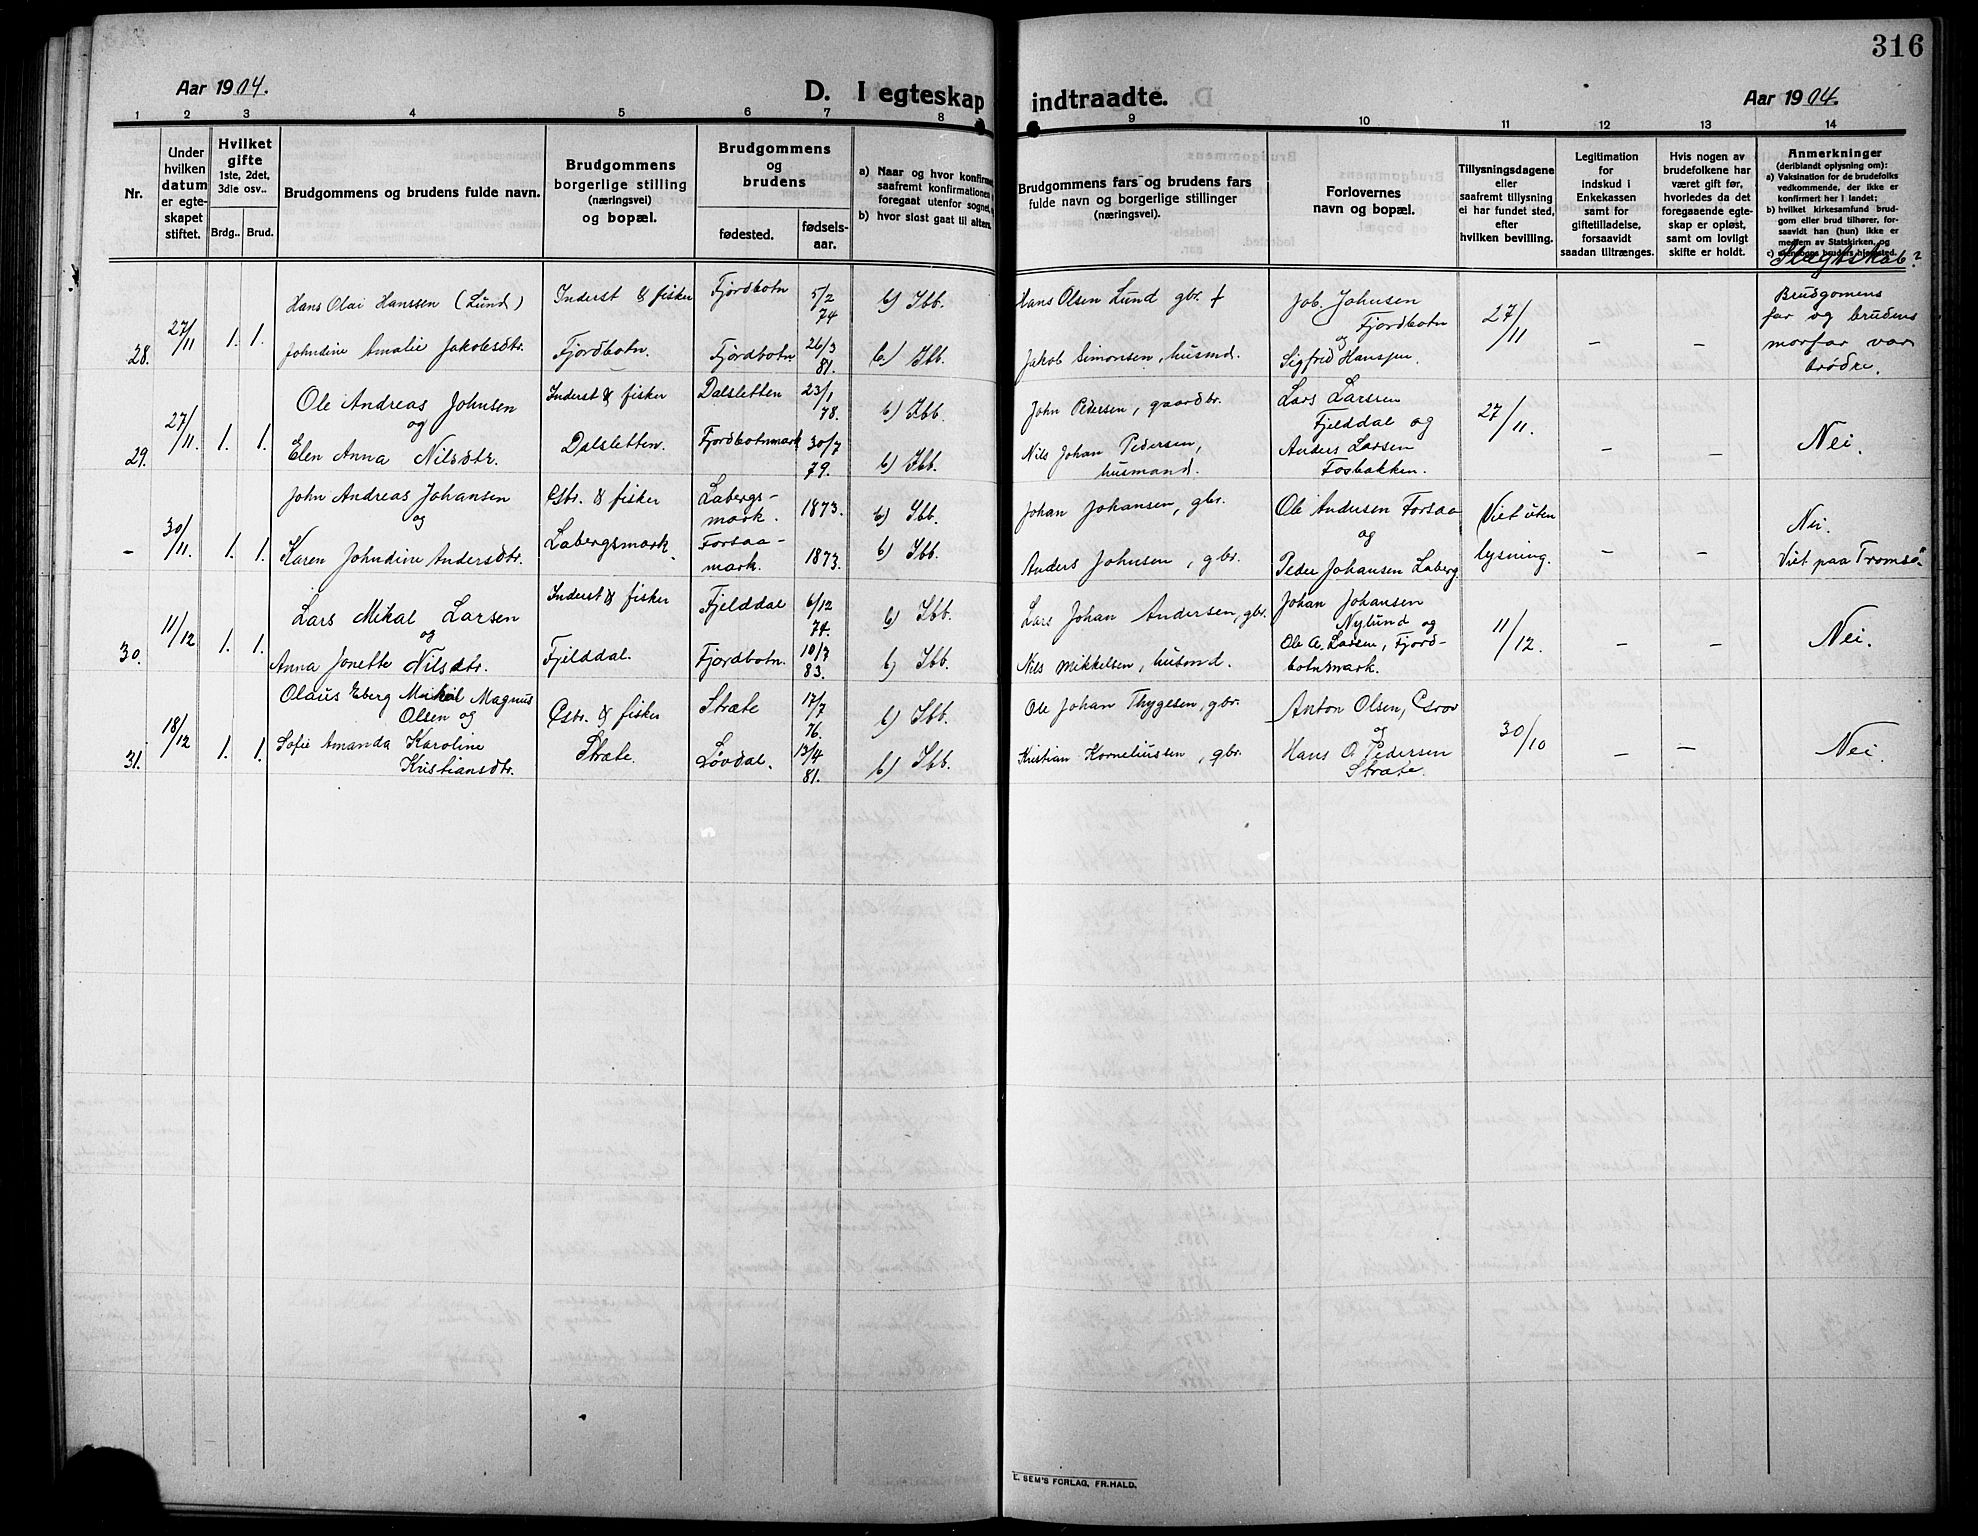 316
Aar 1904.
D. I egteskap indtraadte.
Aar 1904.
1 2 3 4 5 6 7 8 9 10 11 12 13 14
Nr.
Under
hvilken
datum
er egte-
skapet
stiftet.
Hvilket
gifte
1ste, 2det,
3die osv..
Brdg.. Brud.
Brudgommens og brudens fulde navn.
Brudgommens
borgerlige stilling
(næringsvei)
og bopæl.
Brudgommens
og
brudens
fødested.
fødsels-
aar.
a) Naar og hvor konfirm.
saafremt konfirmationen
foregaat utenfor sognet,
b) hvor sidst gaat til alters.
Brudgommens fars og brudens fars
fulde navn og borgerlige stillinger
(næringsvei).
Forlovernes
navn og bopæl.
Tillysningsdagene
eller
saafremt tillysning
ei har fundet sted,
efter
hvilken bevilling.
Legitimation
for
indskud i
Enkekassen
samt for
giftetilladelse,
forsaavidt
saadan tiltrænges.
Hvis nogen av
brudefolkene har
været gift før,
hvorledes da det
foregaaende egte-
skap er opløst,
samt om lovligt
skifte er holdt.
Anmerkninger
(deriblandt oplysning om):
a) Vaksination for de brudefolks
vedkommende, der ikke er
konfirmert her i landet;
b) hvilket kirkesamfund brud-
gom eller brud tilhører, for-
saavidt han (hun) ikke er
medlem av Statskirken, og
Slægtskab?
28. 27/11 1. 1.
Hans Olai Hanssen (Lund)
Johndine Amalie Jakobsdtr.
Inderst & fisker
Fjordbotn.
Fjordbotn 5/2 74
Fjordbotn 26/3 81.
b) Ibb.
b.) Ibb.
Hans Olsen Lund gbr. †
Jakob Simonsen, husmd.
Job. Johnsen
Fjordbotn
og
Sigfrid Hanssen.
27/11 – –
Brudgomens
far og brudens
morfar var
brødre.
29. 27/11. 1. 1.
Ole Andreas Johnsen
og
Elen Anna Nilsdtr.
Inderst & fisker
Dalsletten.
Dalsletten 23/1 78.
Fjordbotnmark 30/7 79.
b) Ibb.
b) Ibb.
John Pedersen, gaardbr.
Nils Johan Pedersen,
husmand.
Lars Larsen
Fjelddal og
Anders Larsen
Fosbakken.
27/11. – –
Nei.
– 30/11. 1. 1.
John Andreas Johansen
og
Karen Johndine Andersdtr.
Gbr. & fisker
Labergsmark.
Labergs-
mark. 1873.
Forsaa-
mark. 1873.
b) Ibb.
b) Ibb.
Johan Johansen, gbr.
Anders Johnsen, gbr.
Ole Andersen Forsaa
og
Peder Johansen Laberg.
Viet uten
lysning. – –
Nei.
Viet paa Tromsø.
30. 11/12 1. 1.
Lars Mikal Larsen
og
Anna Jonette Nilsdtr.
Inderst & fisker
Fjelddal.
Fjelddal 6/12 74.
Fjordbotn. 10/7 83.
b) Ibb.
b) Ibb.
Lars Johan Andersen, gbr.
Nils Mikkelsen, husmd.
Johan Johansen
Nylund og
Ole A. Larsen, Fjord-
botnmark.
11/12. – –
Nei.
31. 18/12 1. 1.
Olaus Eberg Mikal Magnus
Olsen og
Sofie Amanda Karoline
Kristiansdtr.
Gbr. & fisker
Stræte.
Stræte 17/7 76.
Løvdal. 13/4 81.
b) Ibb.
b) Ibb.
Ole Johan Thygesen, gbr.
Kristian Korneliussen, gbr.
Anton Olsen, Grov
og
Hans O. Pedersen
Stræte.
30/10 – –
Nei.
E. SEM'S FORLAG, FR.HALD.